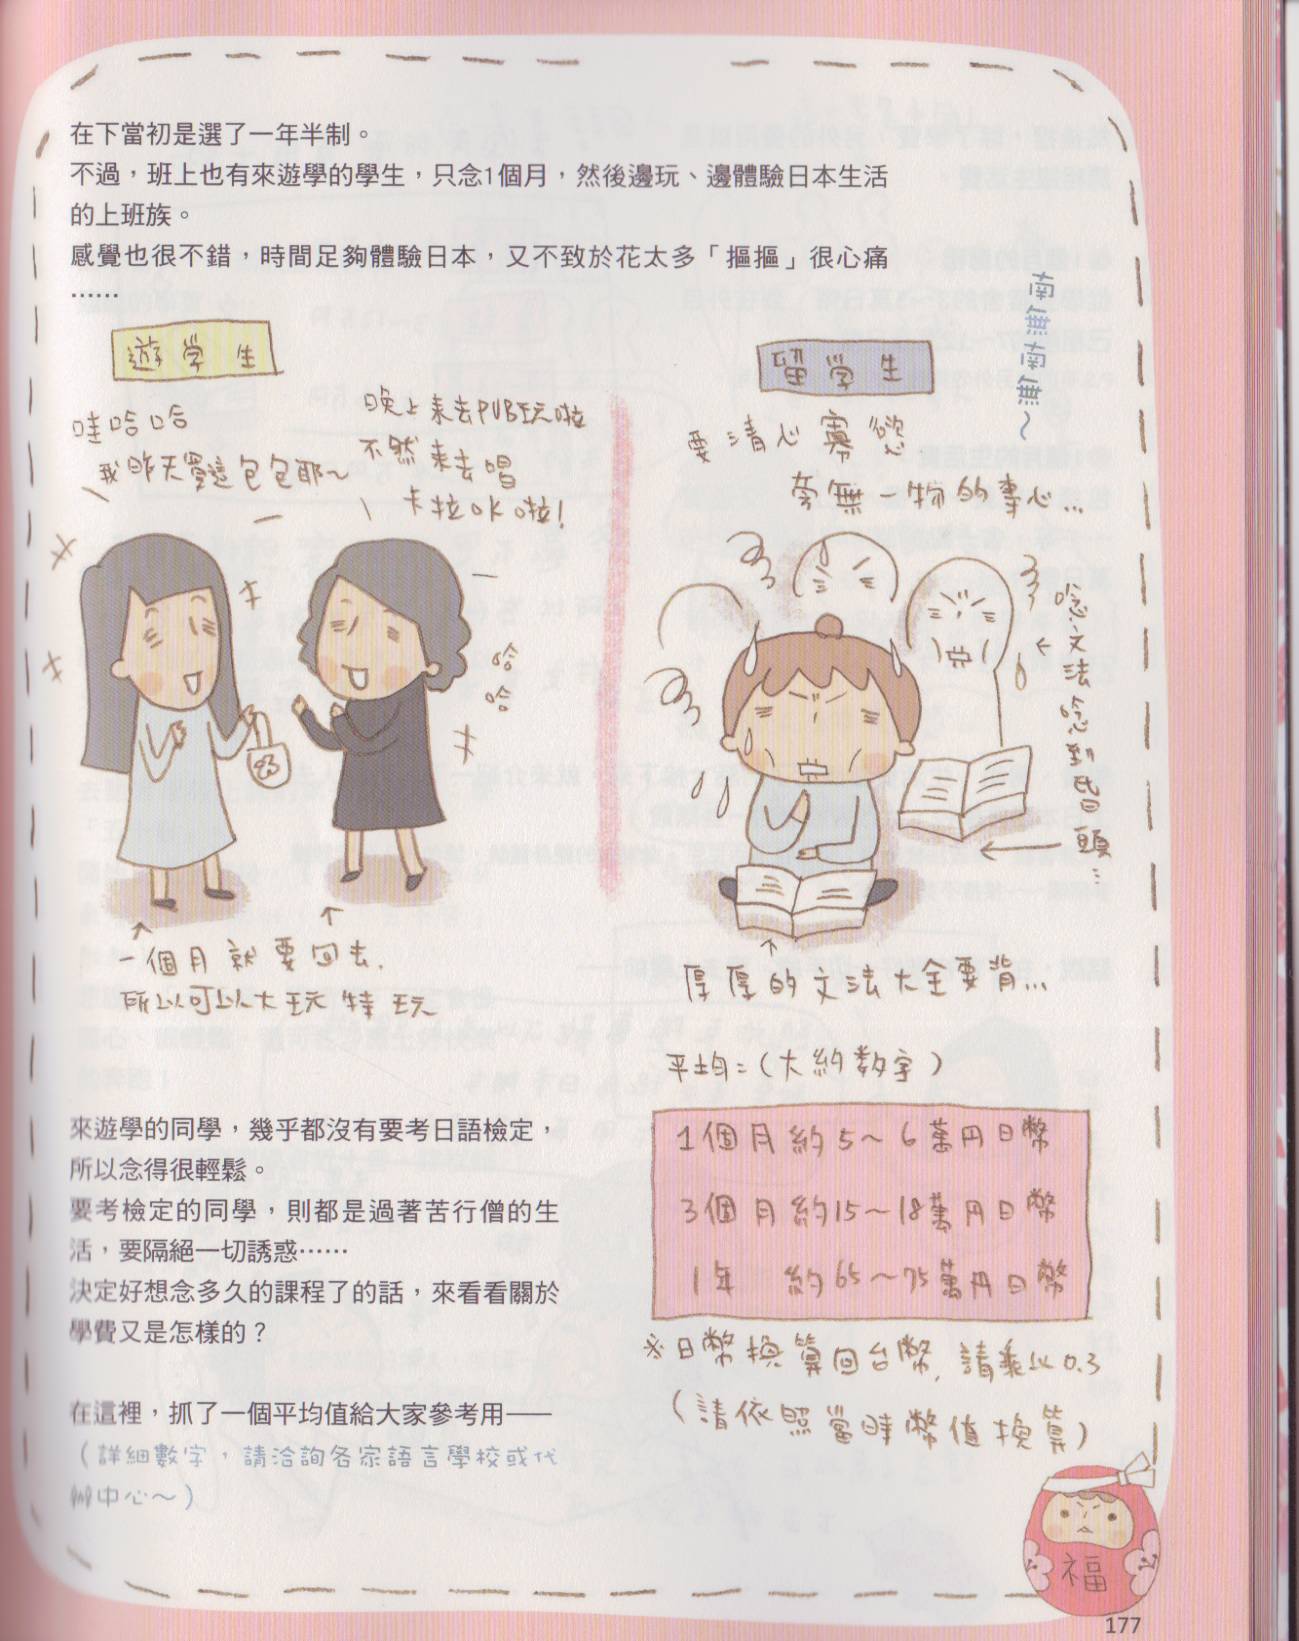 在下當初是選了一年半制。
不過，班上也有來遊學的學生，只念1個月，然後邊玩、邊體驗日本生活
的上班族。
感覺也很不錯，時間足夠體驗日本，又不致於花太多「摳摳」很心痛
……
遊学生
哇哈哈
我昨天買這包包耶～
晚上來去PUB玩啦
不然來去唱
卡拉OK啦！
哈
哈
一個月就要回去.
所以可以大玩特玩
留学生
南無南無～
要清心寡慾
旁無一物的專心...
唸文法唸到昏頭...
厚厚的文法大全要背...
來遊學的同學，幾乎都沒有要考日語檢定，
所以念得很輕鬆。
要考檢定的同學，則都是過著苦行僧的生
活，要隔絕一切誘惑……
決定好想念多久的課程了的話，來看看關於
學費又是怎樣的？
在這裡，抓了一個平均值給大家參考用——
（詳細數字，請洽詢各家語言學校或代
辦中心～）
平均=(大約數字)
1個月約5～6萬円日幣
3個月約15～18萬円日幣
1年 約65～75萬円日幣
※日幣換算回台幣,請乘以0.3
(請依照當時幣值換算)
福
177